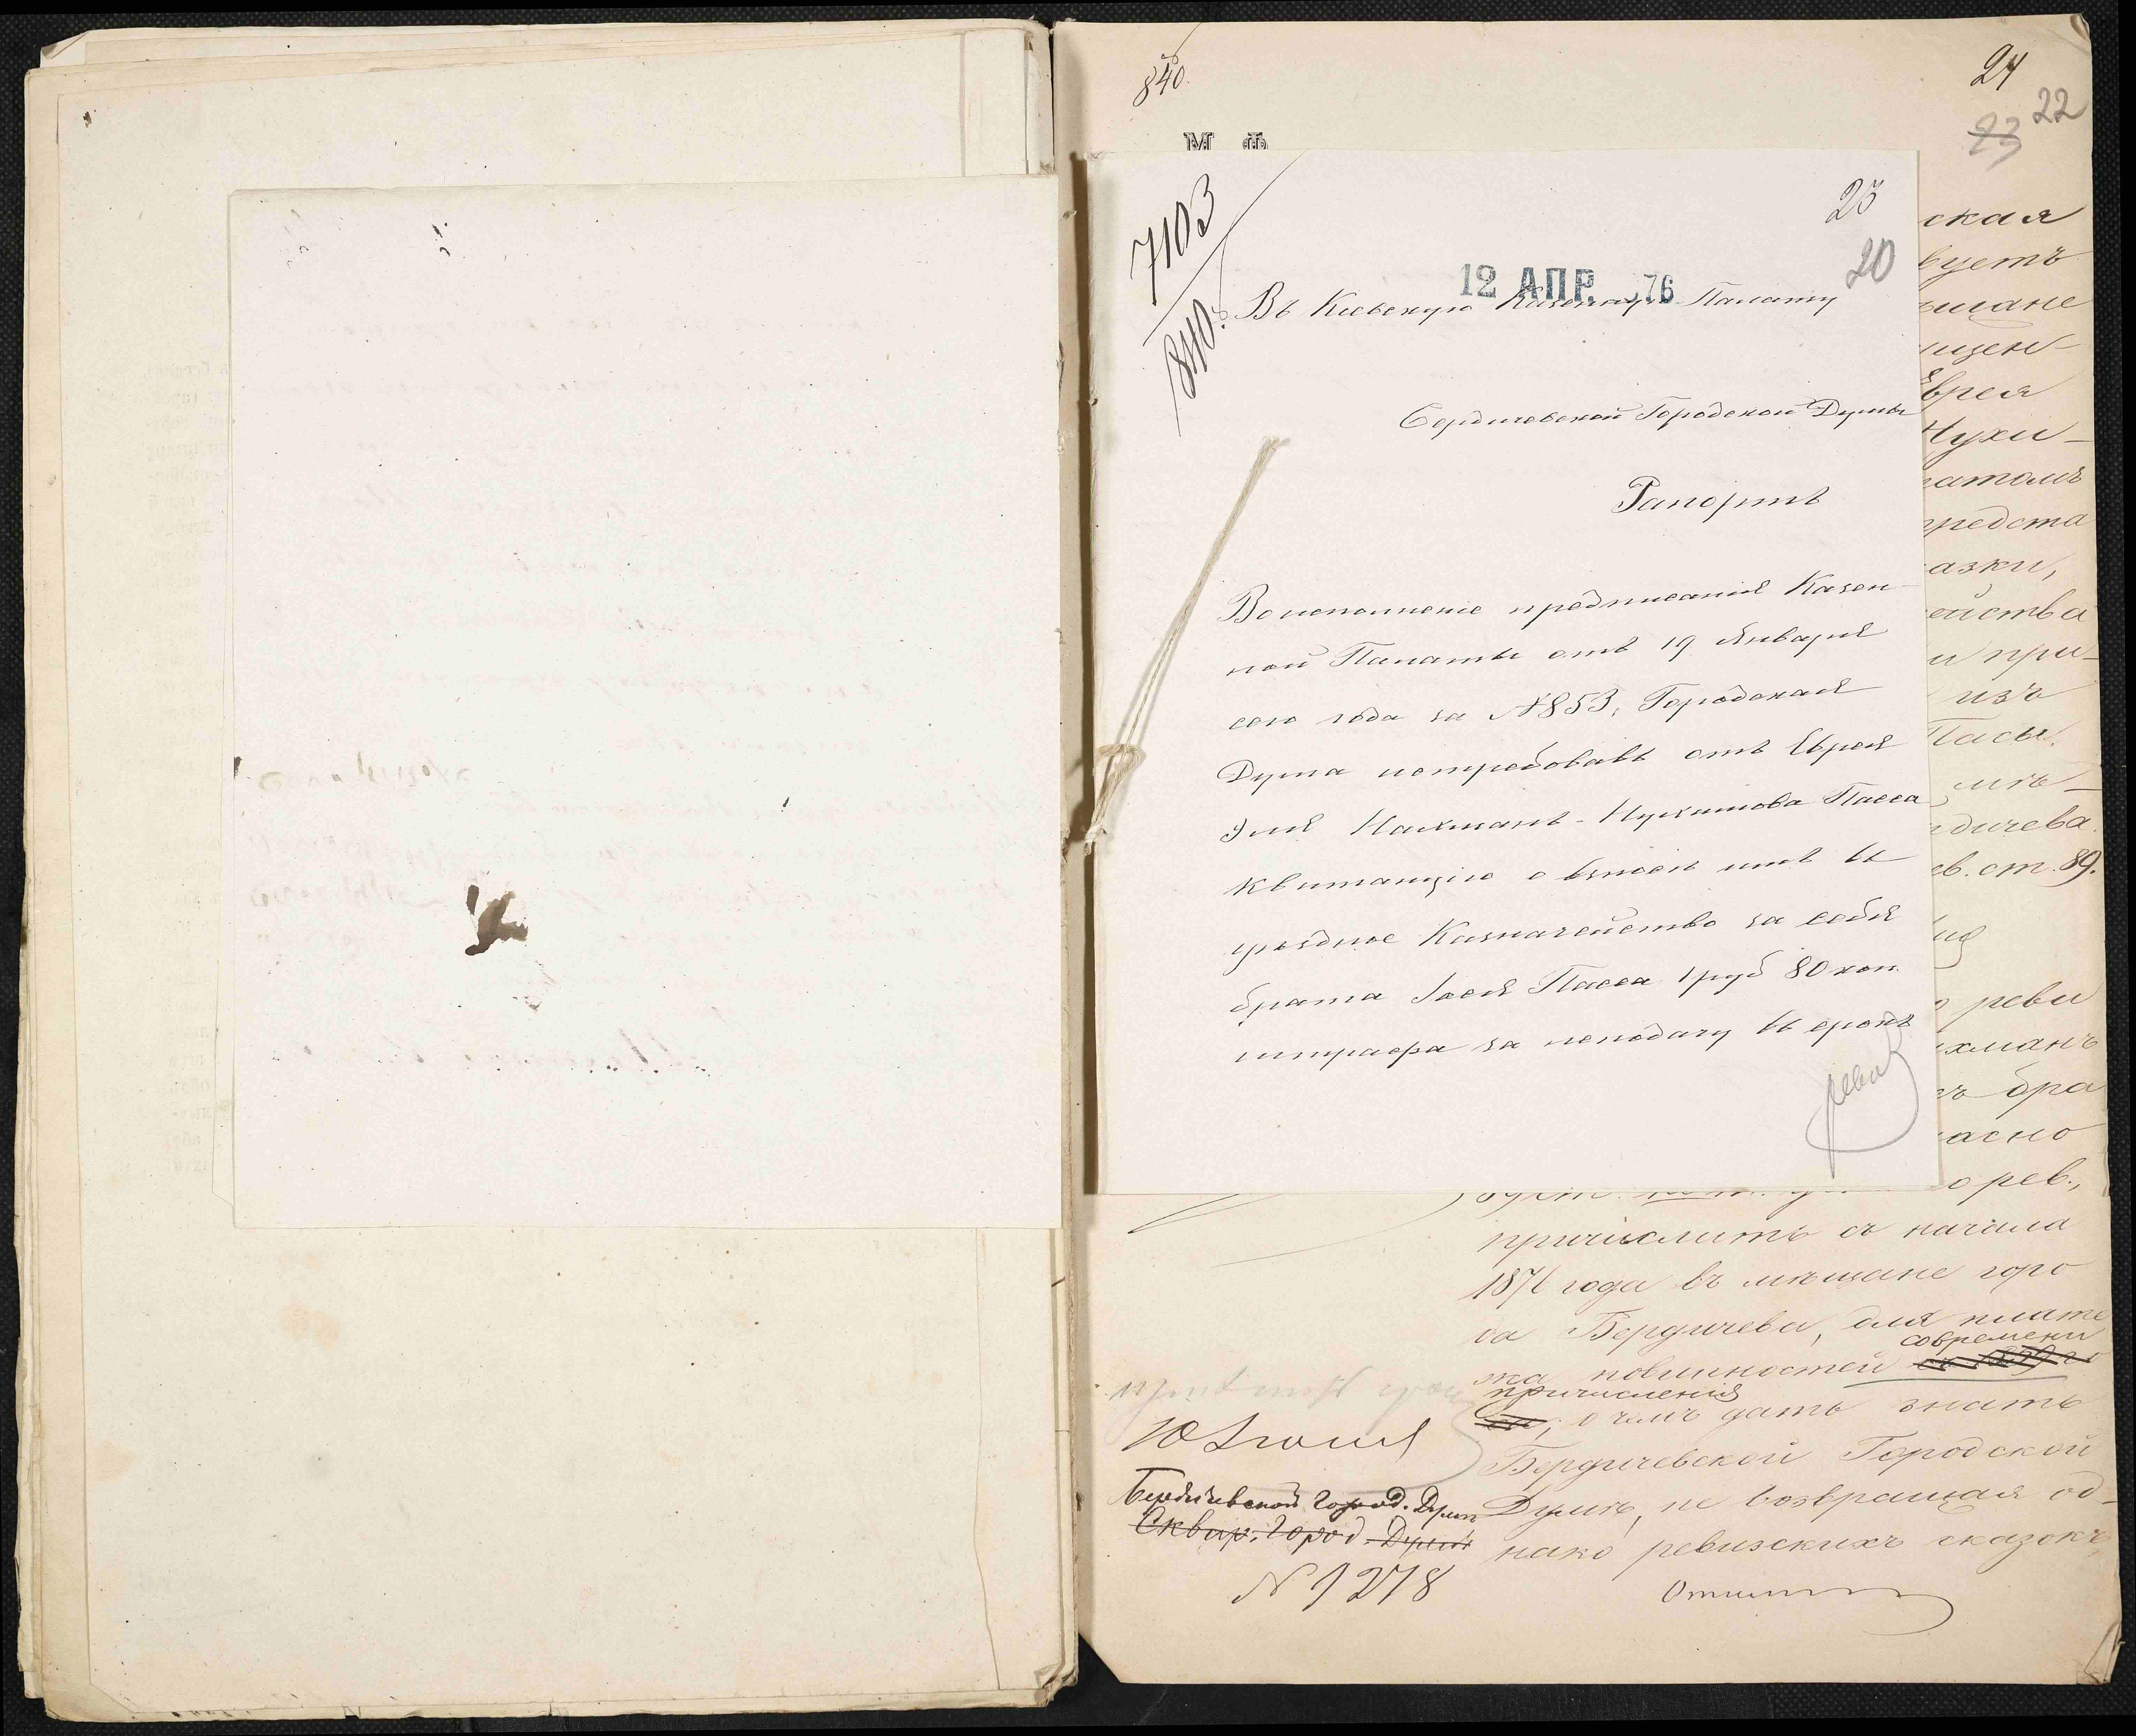 840.
24
22
23
М Ф
7103
840.
23
20
12 АПР. 76
Въ Кіевскую Казенную Палату
Бердичевской Городской Думы
Рапортъ
Во исполненіе предписанія Казен-
ной Палаты отъ 19 Января
сего года за №853, Городская
Дума истребовавъ отъ Еврея
Эля Нахманъ-Нухимова Пасса
квитанцію о взносѣ имъ въ
уѣздное Казначейство за себя
брата Іося Пасса 1 руб 80 коп
штрафа за неподачу въ срокъ
реви
ская
вуетъ
щане
ищен-
Еврея
Нухи-
атомъ
предста
азки,
ейства
и при-
изъ
Пасы,
мѣ-
дичева.
ев. ст. 89.
реви
хманъ
ъ бра
асно
о рев.,
причислить съ начала
1876 года въ мѣщане горо
да Бердичева, для плате
современи
жа повинностей
причисленія
о чемъ дать знать
Бердичевской Городской
Думѣ, не возвращая од-
нако ревизскихъ сказокъ,
Бердичевской Город. Думѣ
Сквир. Город. Думѣ
№ 1278